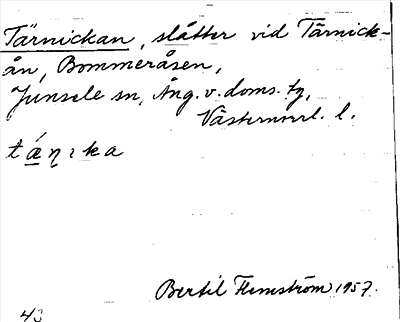 Tärnickan, slåtter vid Tärnick-
ån, Bommeråsen,
Junsele sn, Ång. v. doms. tg,
Västernorrl. l.
tǽn̥ıka
Bertil Flemström 1957.
43